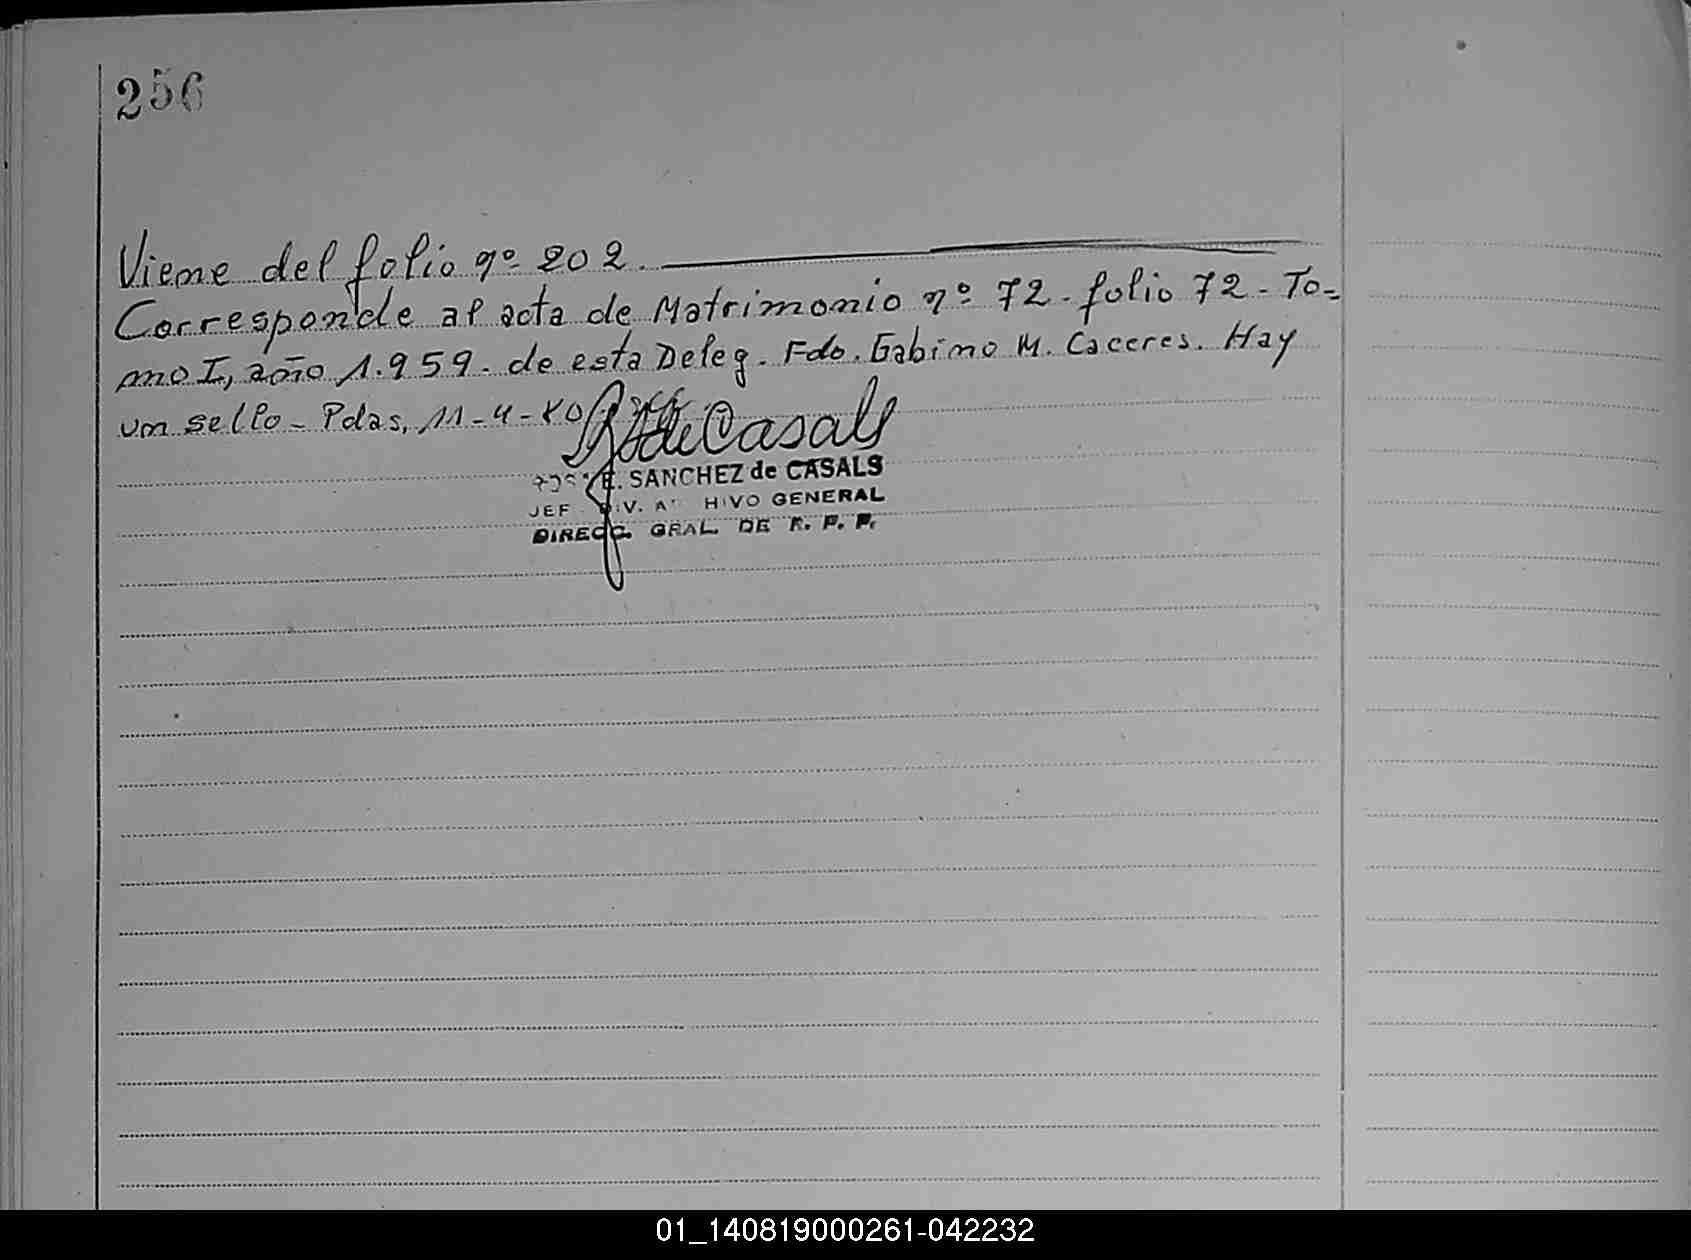 256
Viene del folio nº 202.
Corresponde al acta de Matrimonio nº 72. folio 72 - To=
mo I, año 1.959. de esta Deleg. Fdo. Gabino M. Caceres. Hay
un sello - Pdas, 11-4-80
de Casals
E. SANCHEZ de CASALS
JEF DIV. A HIVO GENERAL
DIRECC. GRAL. DE R. P. P.
01_140819000261-042232